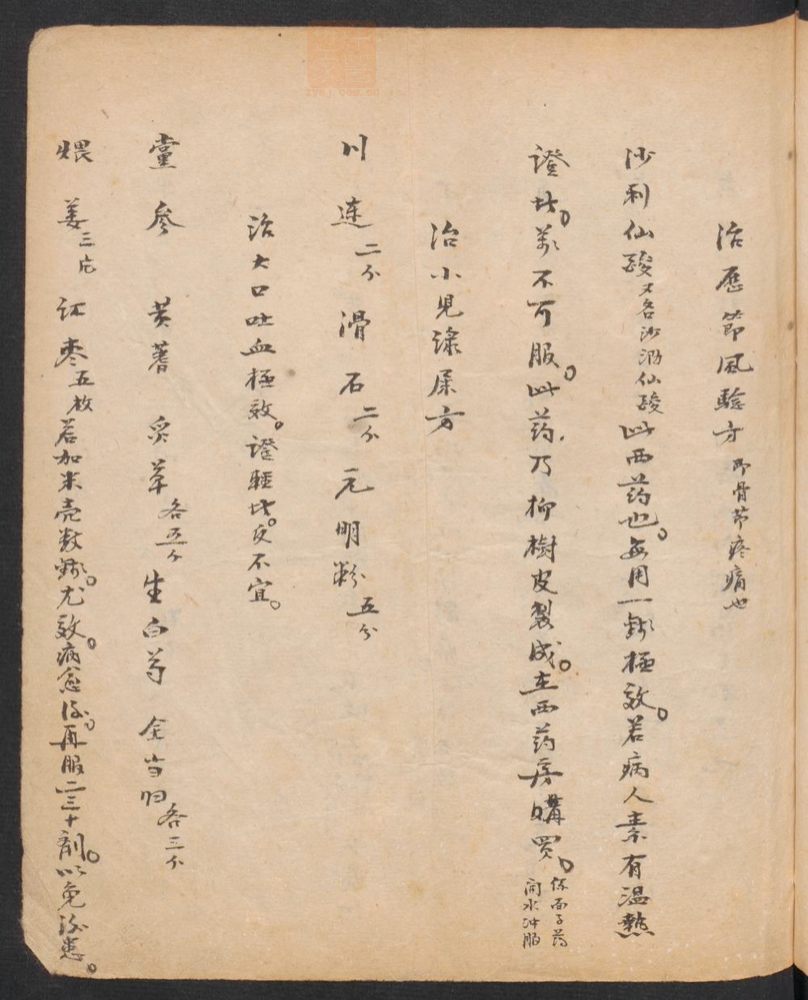 治歷節風驗方 即骨節疼痛也
沙利仙酸 又名沙溺仙酸 此西药也。每用一錢極效。若病人素有温熱
證者。萬不可服。此药。乃柳樹皮製成。在西药房購買。 係面子药 開水冲服
治小兒綠屎方
川連二分 滑石二分 元明粉五分
治大口吐血極效。證輕者。反不宜。
黨參 黄蓍 炙草各五分 生白芍 全当归各三分
煨姜三片 红枣五枚 若加米壳数錢。尤效。病愈後。再服二三十劑。以免後患。